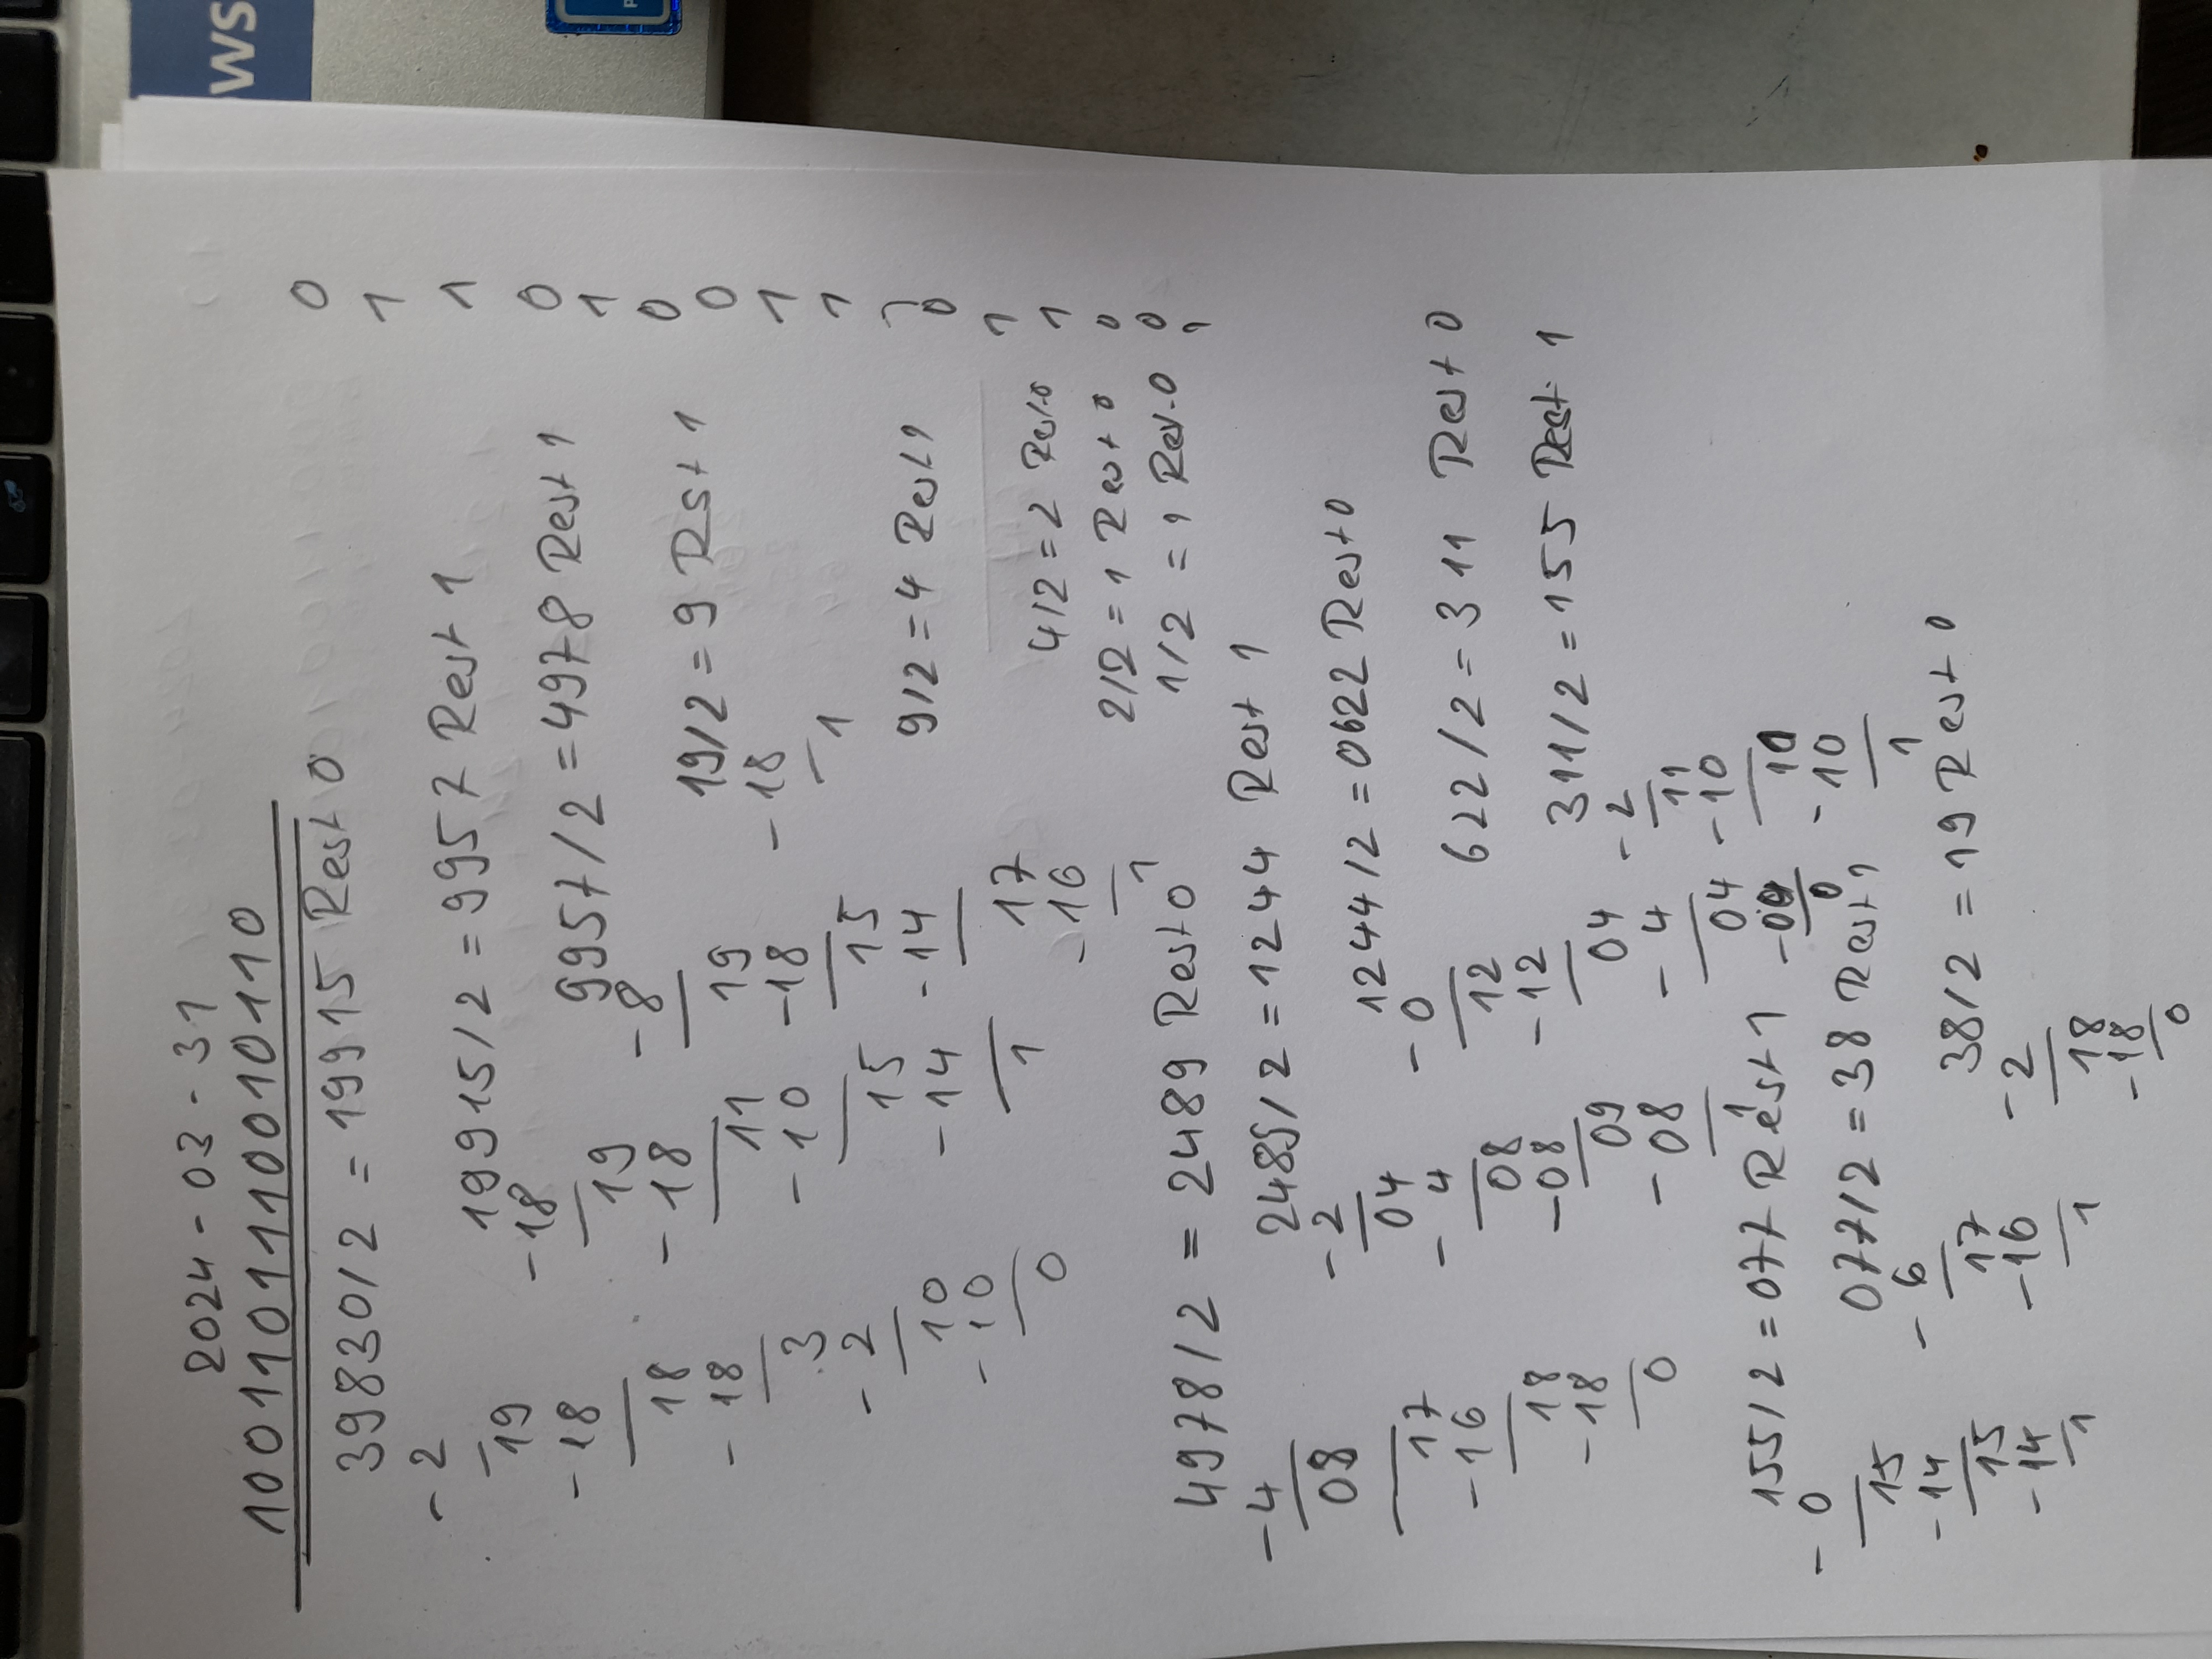 2024 - 03 - 31
1001101110010110
39830/2 = 19915 Rest 0
- 2
19
- 18
18
- 18
3
- 2
10
- 10
0
19915/2 = 9957 Rest 1
- 18
19
- 18
11
- 10
15
- 14
1
9957/2 = 4978 Rest 1
- 8
19
- 18
15
- 14
17
- 16
1
19/2 = 9 Rst 1
- 18
1
9/2 = 4 Rest 1
4/2 = 2 Rest 0
2/2 = 1 Rest 0
1/2 = 1 Rest 0
4978/2 = 2489 Rest 0
- 4
08
17
- 16
18
- 18
0
2489/2 = 1244 Rest 1
- 2
04
- 4
08
- 08
09
- 08
1
1244/2 = 0622 Rest 0
- 0
12
- 12
04
- 4
04
0
622/2 = 311 Rest 0
311/2 = 155 Rest 1
- 2
11
- 10
11
- 10
1
155/2 = 077 Rest 1
- 0
15
- 14
15
- 14
1
077/2 = 38 Rest 1
- 6
17
- 16
1
38/2 = 19 Rest 0
- 2
18
- 18
0
0
1
1
0
1
0
0
1
1
1
0
1
1
0
0
1
WS